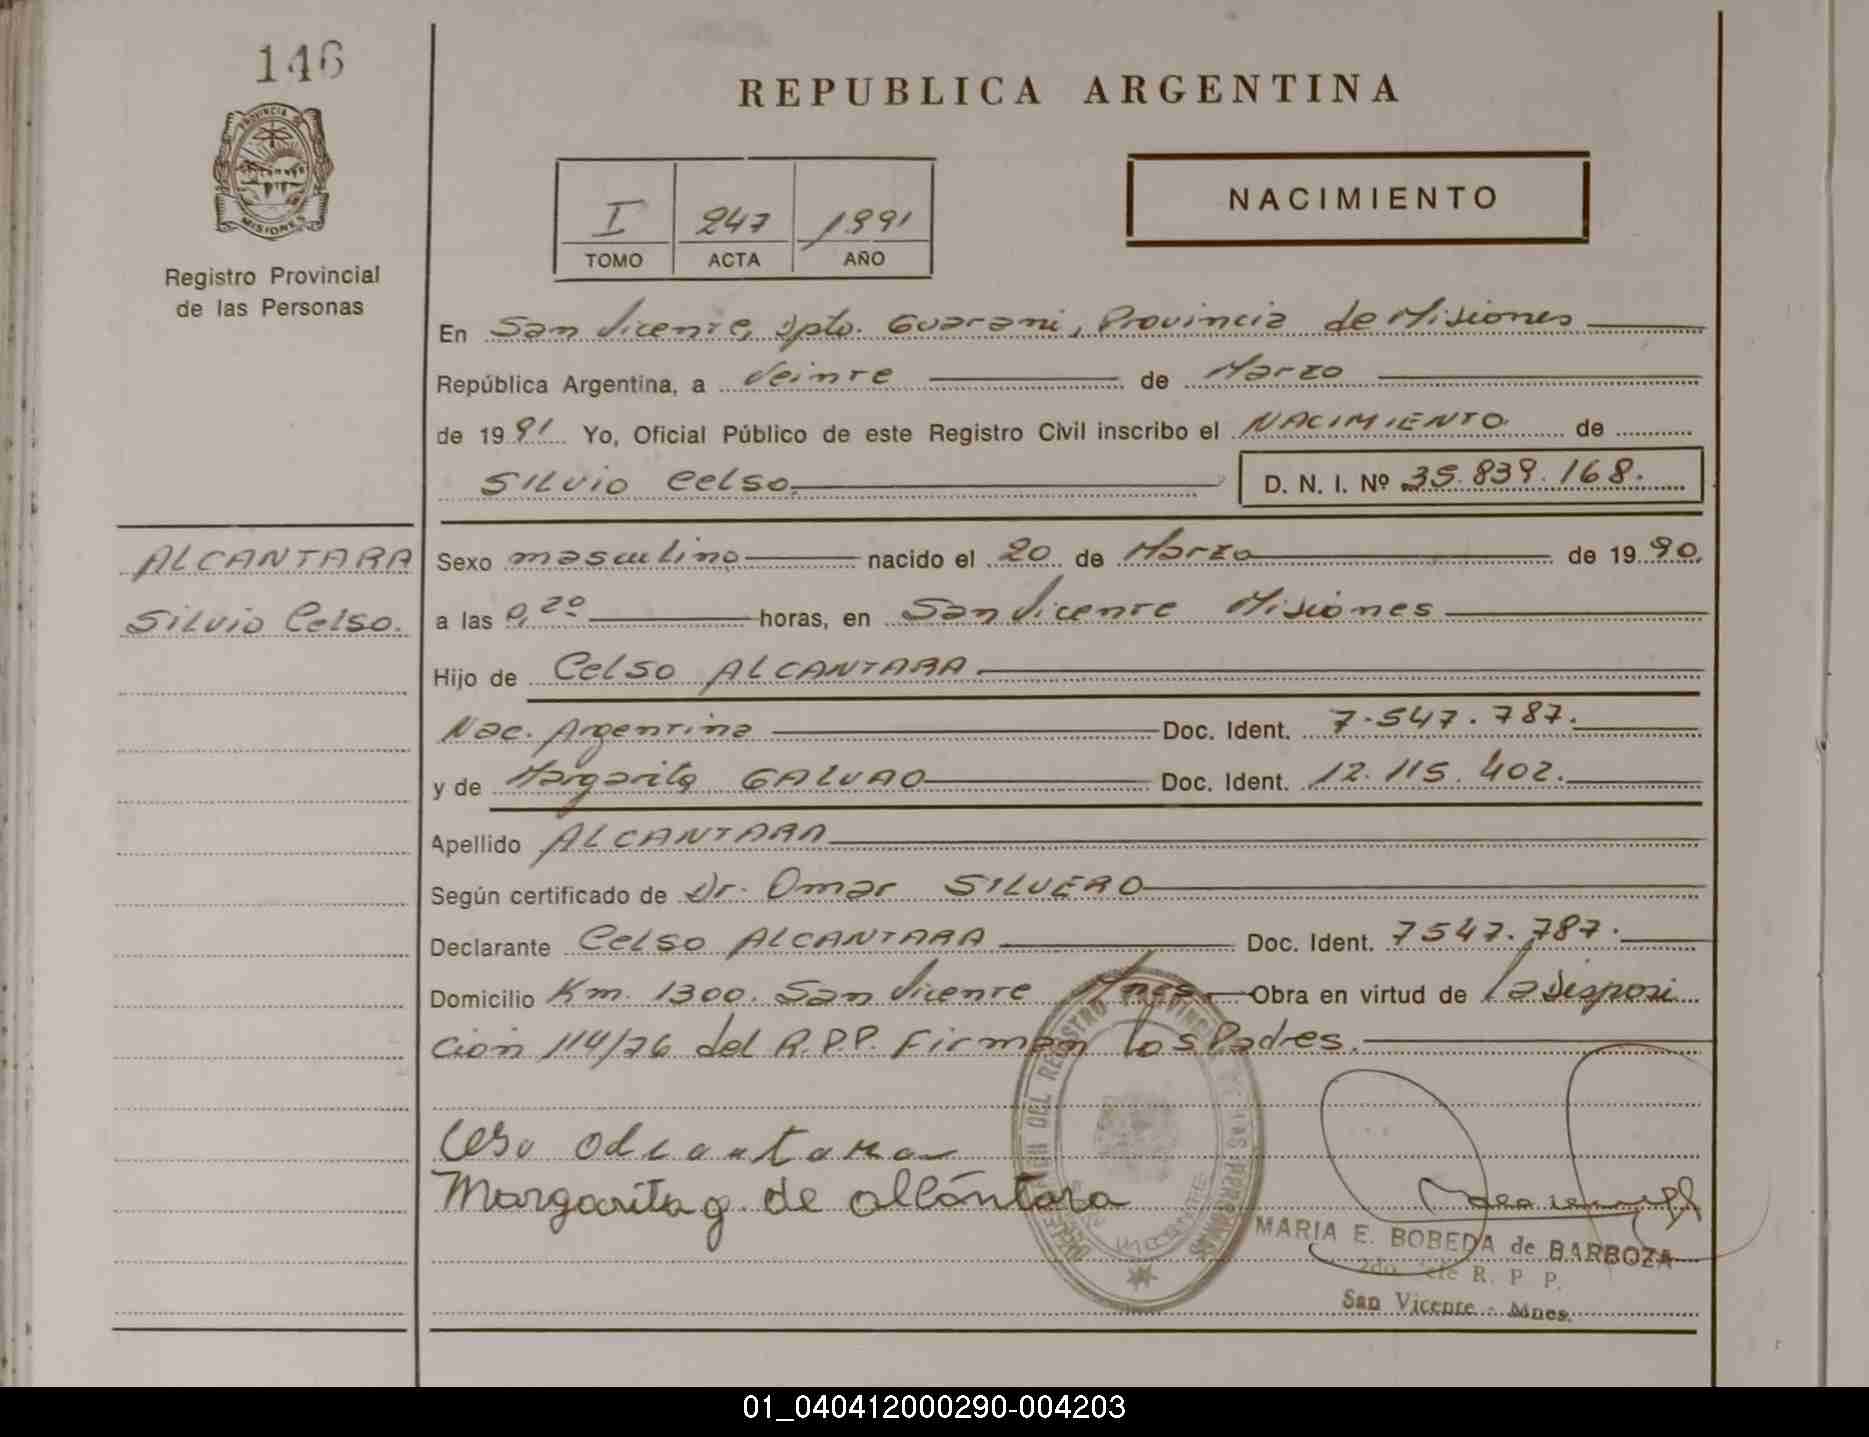 146
PROVINCIA DE
MISIONES
Registro Provincial
de las Personas
REPUBLICA ARGENTINA
I 247 1991
TOMO ACTA AÑO
NACIMIENTO
En San Vicente, Dpto. Guarani, Provincia de Misiones
República Argentina, a Veinte de Marzo
de 1991 Yo, Oficial Público de este Registro Civil inscribo el NACIMIENTO de
SILVIO Celso. D. N. I. Nº 35.839.168.
ALCANTARA
Silvio Celso.
Sexo masculino nacido el 20 de Marzo de 1990.
a las 0,20 horas, en San Vicente Misiones
Hijo de Celso ALCANTARA.
Nac. Argentina Doc. Ident. 7.547.787.
y de Margarita GALVAO Doc. Ident. 12.115.402.
Apellido ALCANTARA
Según certificado de Dr. Omar SILVERO
Declarante Celso ALCANTARA Doc. Ident. 7547.787.
Domicilio Km. 1300. San Vicente Mnes. Obra en virtud de la Disposi
ción 114/76 del R.P.P. Firman los Padres.
Celso alcantara
Margarita g. de alcántara
DEL REGISTRO PROVINCIAL DE LAS PERSONAS
MARIA E. BOBEDA de BARBOZA
2do. Jefe R. P. P.
San Vicente - Mnes.
01_040412000290-004203